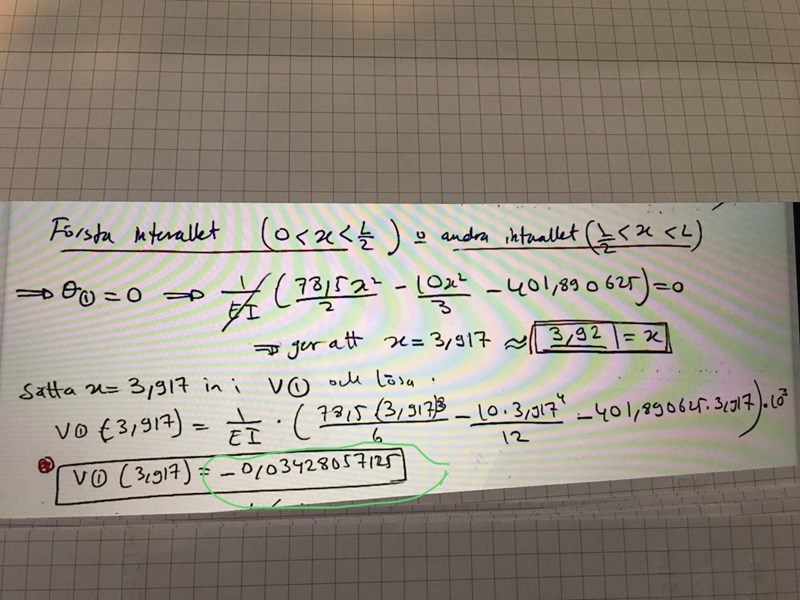 Första intervallet (0 < x < L/2) o andra intervallet (L/2 < x < L)
⇒ θ① = 0 ⇒ 1/EI (78,5x²/2 - 10x²/3 - 401,890625) = 0
⇒ ger att x = 3,917 ≈ 3,92 = x
Sätta x = 3,917 in i V① och lösa.
V① (3,917) = 1/EI · (78,5(3,917)³/6 - 10·3,917⁴/12 - 401,890625·3,917)·10³
V① (3,917) = -0,03428057125